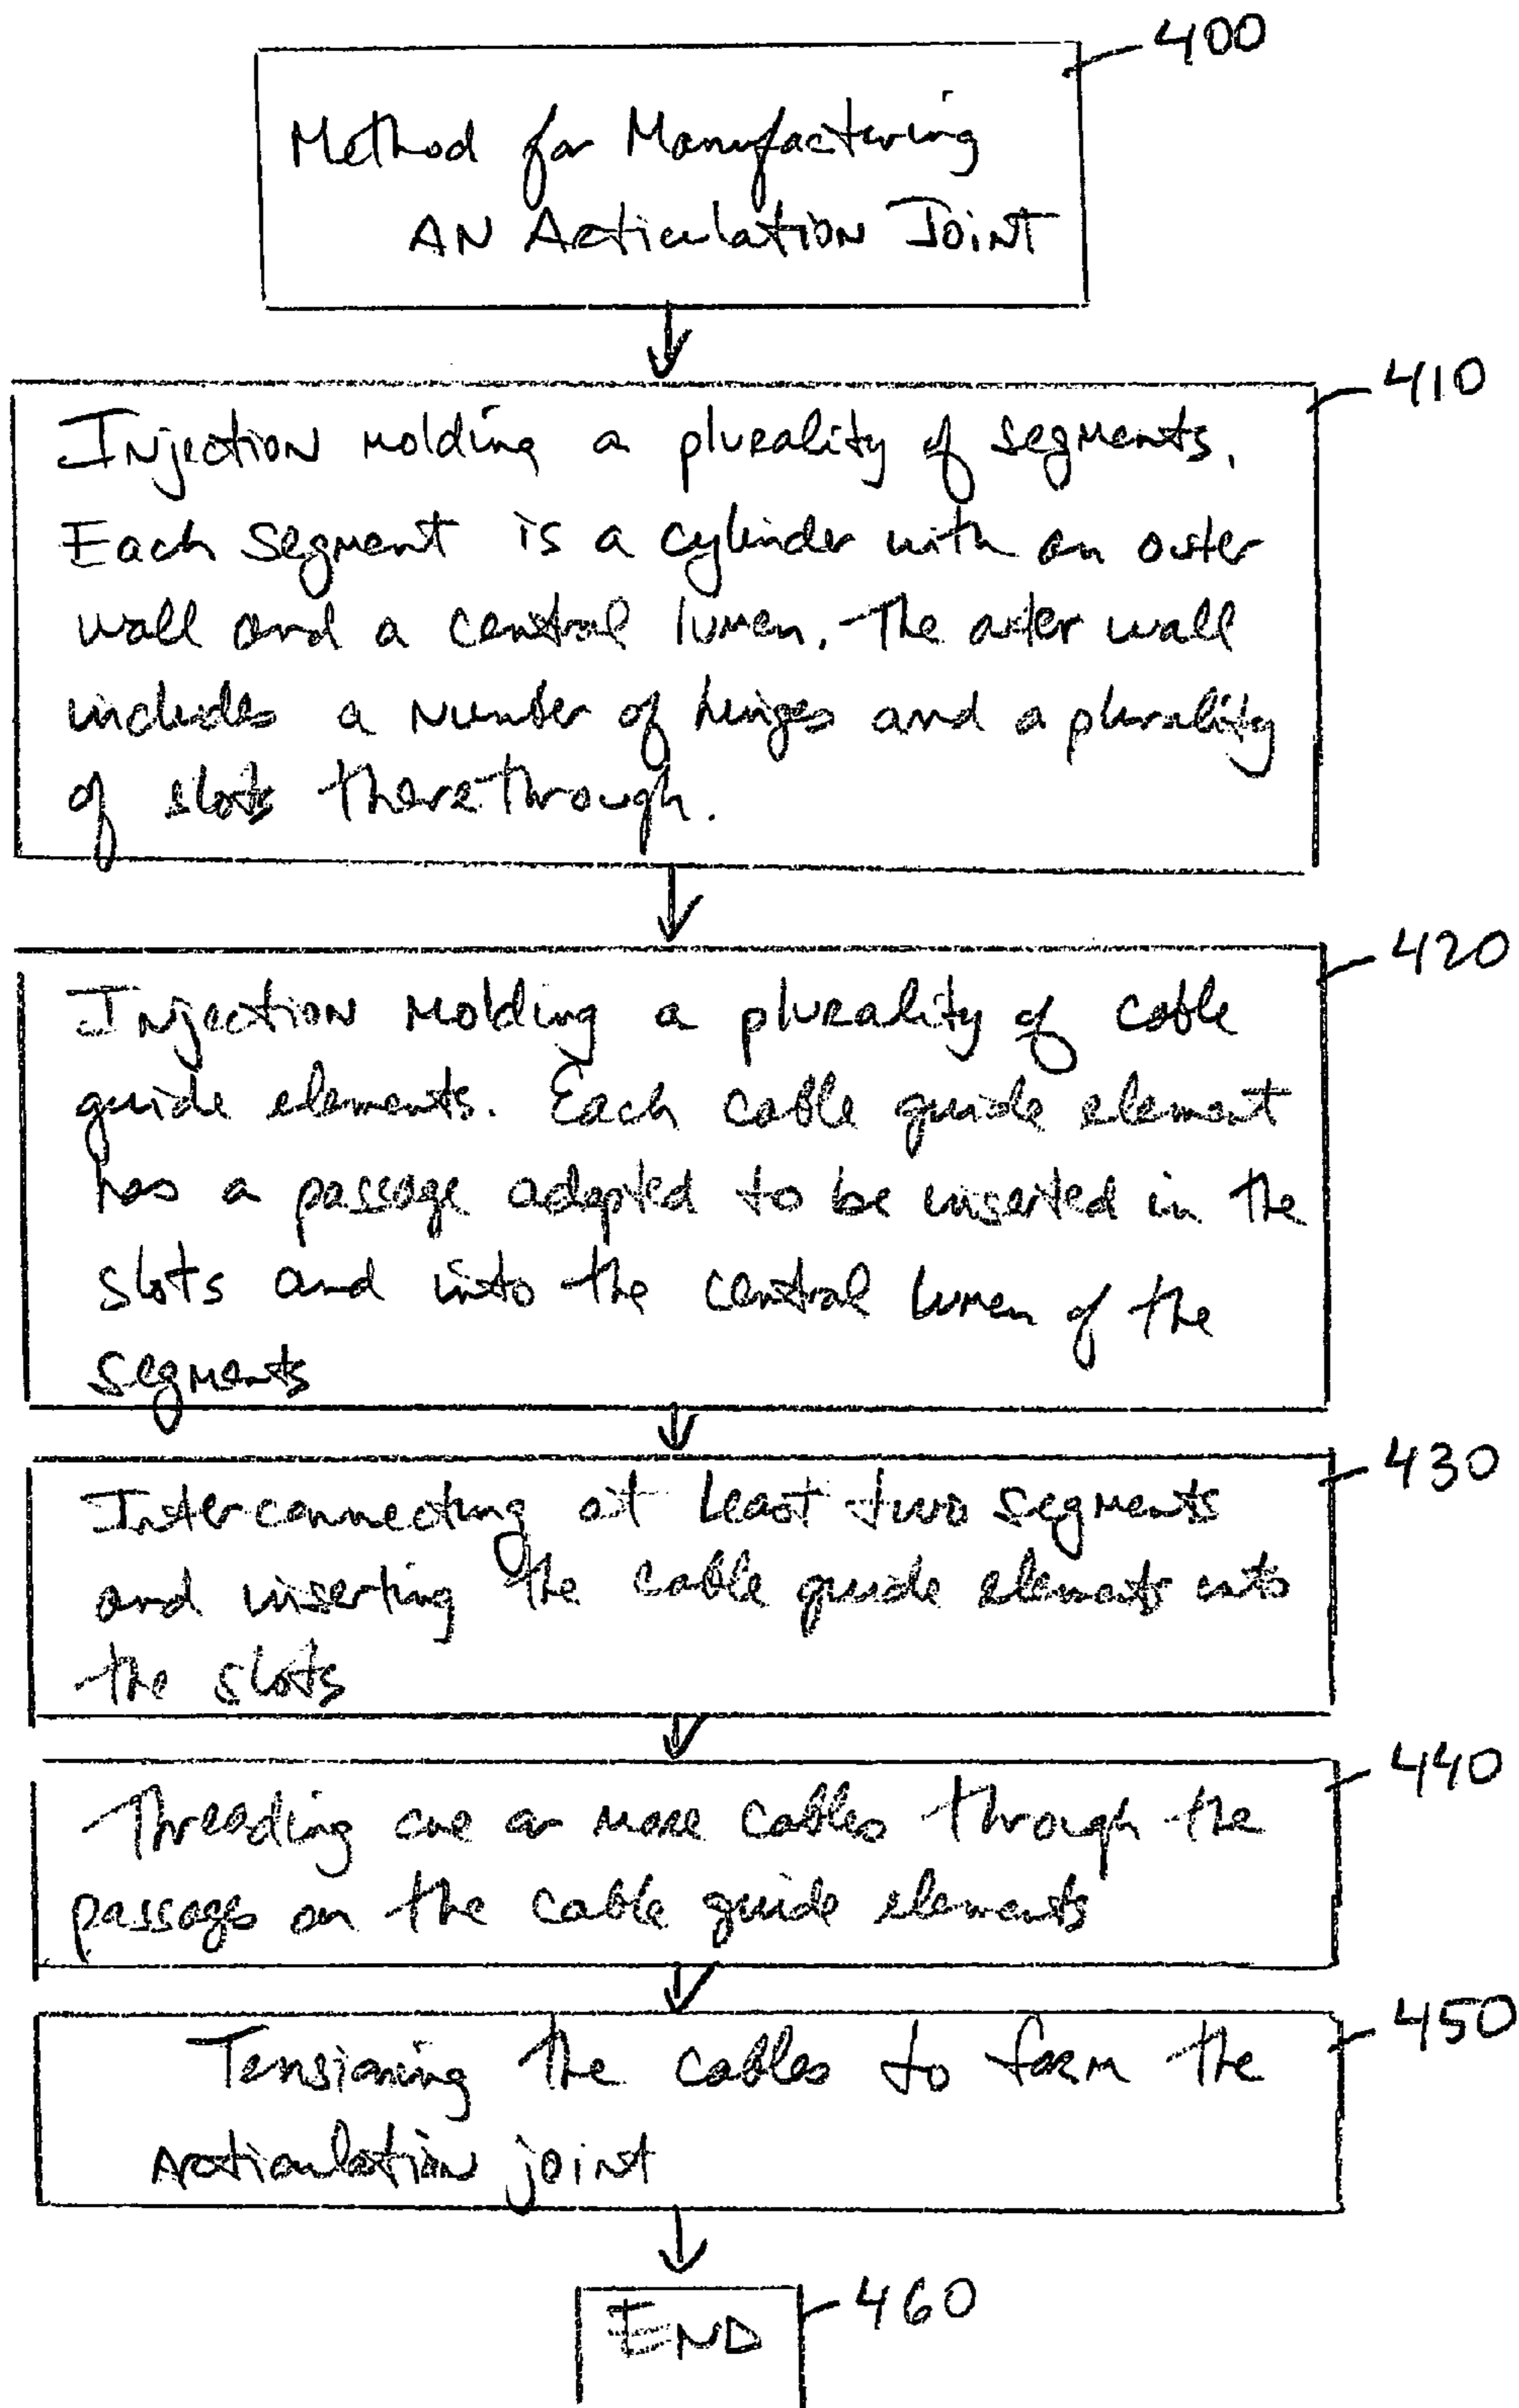 400
Method for Manufacturing
AN Articulation Joint
410
Injection molding a plurality of segments.
Each segment is a cylinder with an outer
wall and a central lumen. The outer wall
includes a number of hinges and a plurality
of slots therethrough.
420
Injection molding a plurality of cable
guide elements. Each cable guide element
has a passage adapted to be inserted in the
slots and into the central lumen of the
segments
430
Interconnecting at least two segments
and inserting the cable guide elements into
the slots
440
Threading one or more cables through the
passages on the cable guide elements
450
Tensioning the cables to form the
articulation joint
460
END